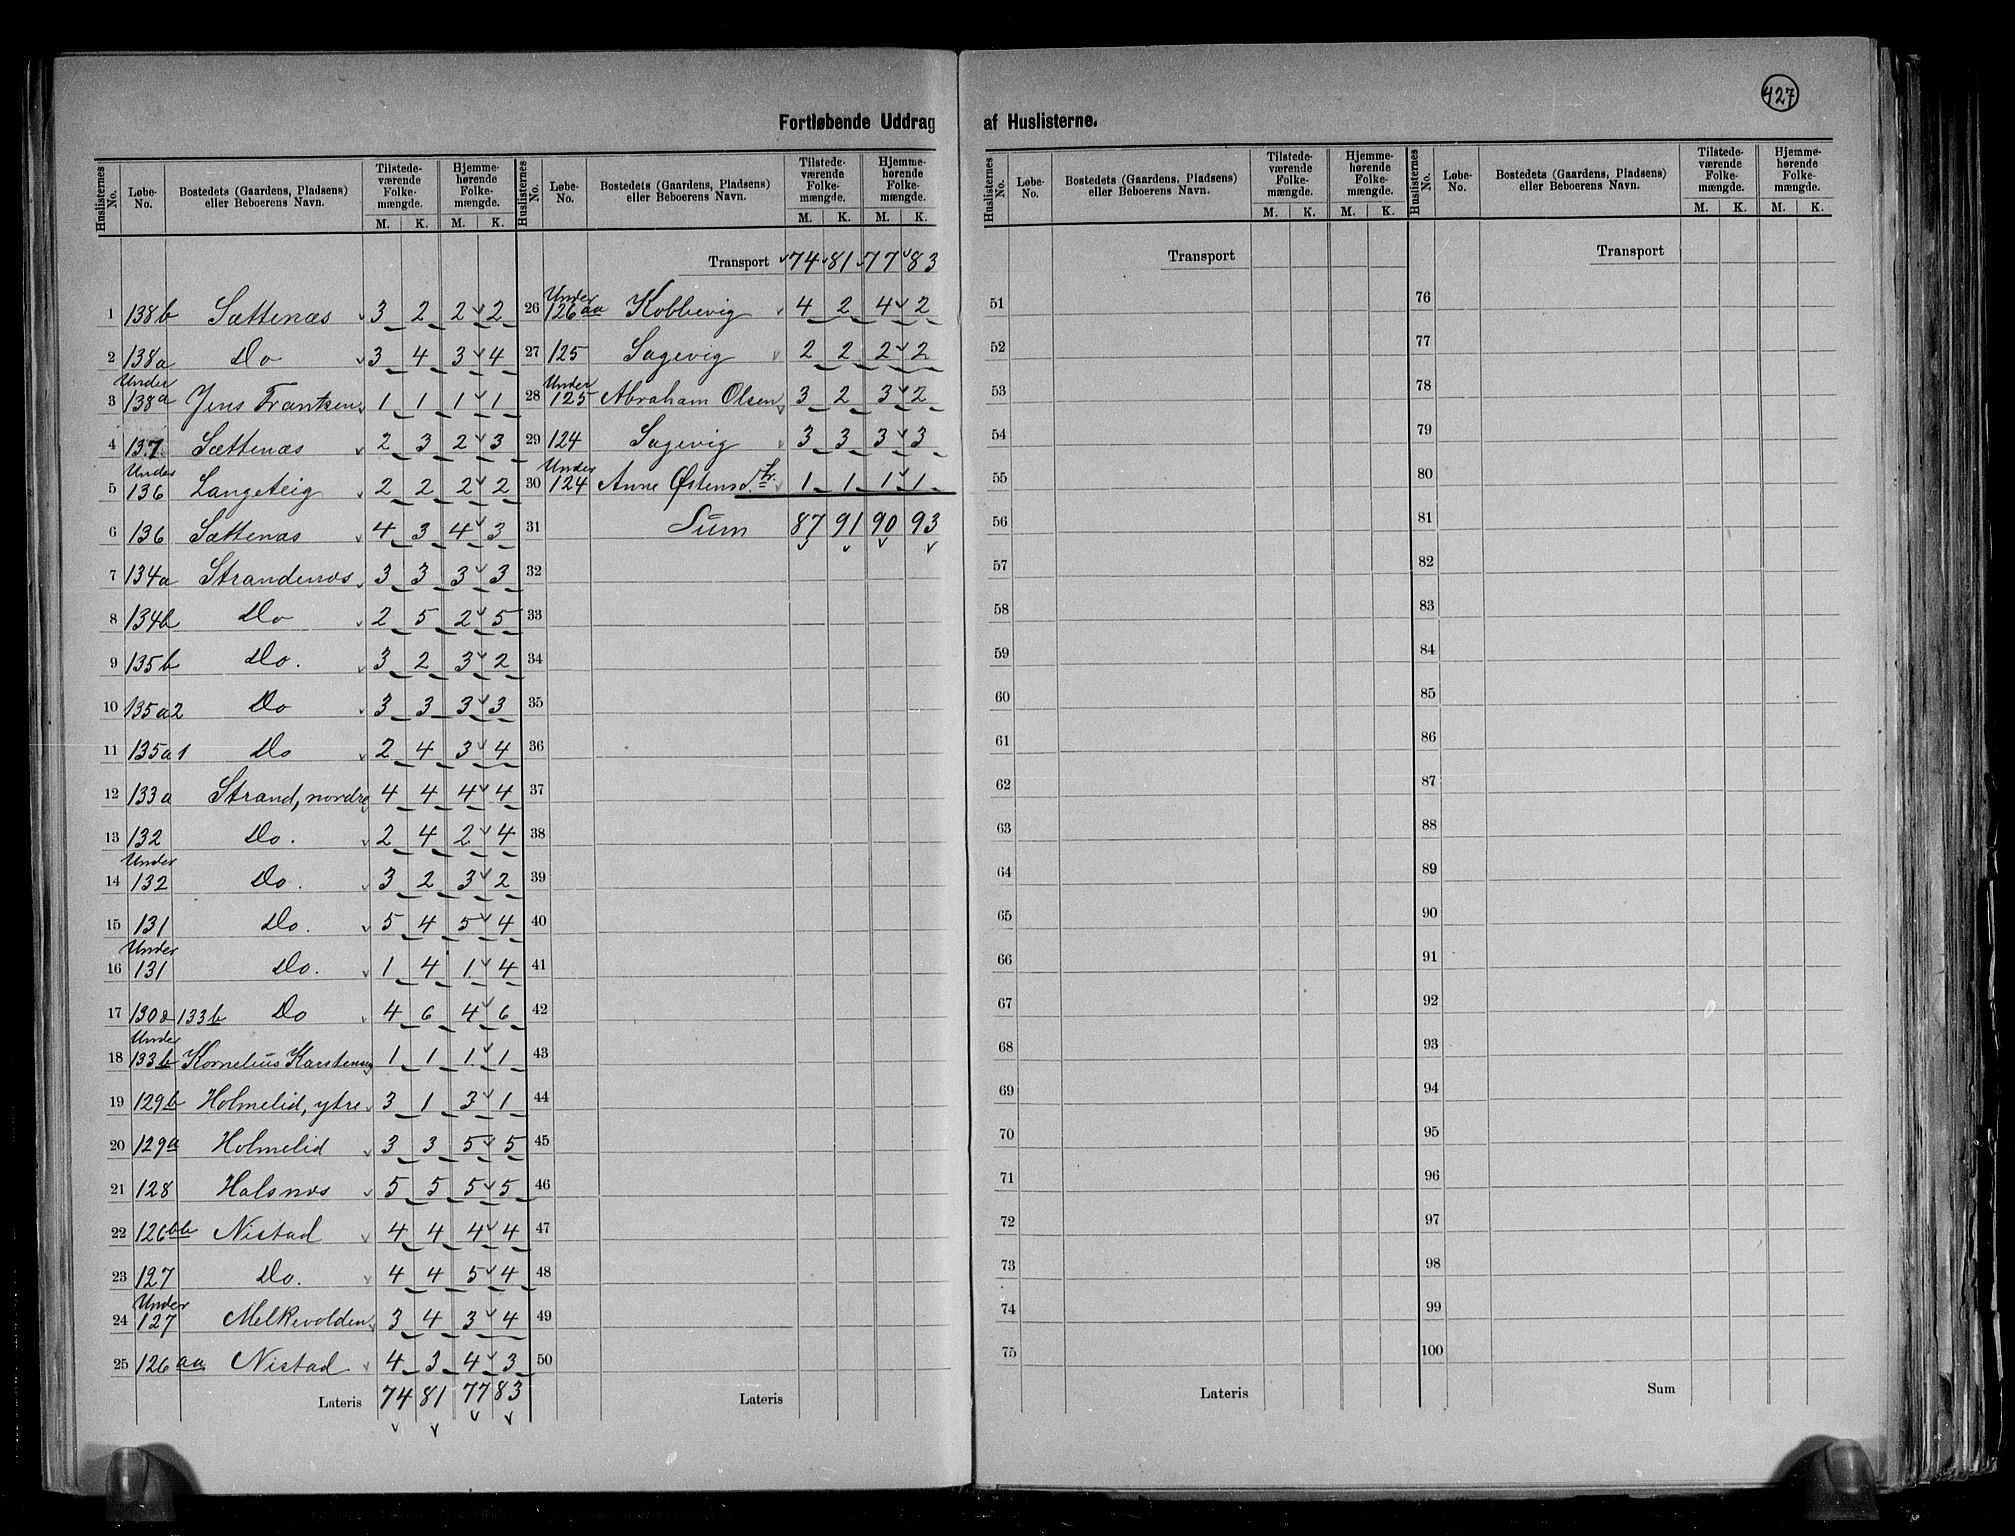 427
Fortløbende Uddrag af Huslisterne.
Huslisternes No. | Løbe-No. | Bostedets (Gaardens, Pladsens) eller Beboerens Navn. | Tilstede-værende Folke-mængde. M. K. | Hjemme-hørende Folke-mængde. M. K.
1 138b Sættenæs 3 2 2 2
2 138a Do 3 4 3 4
3 Under 138a Jens Frantzen 1 1 1 1
4 137. Sættenæs 2 3 2 3
5 Under 136 Langeteig 2 2 2 2
6 136 Sættenæs 4 3 4 3
7 134a Strandenæs 3 3 3 3
8 134b Do 2 5 2 5
9 135b Do. 3 2 3 2
10 135a2 Do 3 3 3 3
11 135a1 Do 2 4 3 4
12 133a Strand, nordre 4 4 4 4
13 132 Do. 2 4 2 4
14 Under 132 Do. 3 2 3 2
15 131 Do. 5 4 5 4
16 Under 131 Do. 1 4 1 4
17 130 133b Do 4 6 4 6
18 Under 133b Kornelius Karstensen 1 1 1 1
19 129b Holmelid, ytre 3 1 3 1
20 129a Holmelid 3 3 5 5
21 128 Halsnæs 5 5 5 5
22 126bb Nistad 4 4 4 4
23 127 Do. 4 4 5 4
24 Under 127 Melkevolden 3 4 3 4
25 126aa Nistad 4 3 4 3
Lateris 74 81 77 83
Huslisternes No. | Løbe-No. | Bostedets (Gaardens, Pladsens) eller Beboerens Navn. | Tilstede-værende Folke-mængde. M. K. | Hjemme-hørende Folke-mængde. M. K.
Transport 74 81 77 83
26 Under 126aa Kobbevig 4 2 4 2
27 125 Sagevig 2 2 2 2
28 Under 125 Abraham Olsen 3 2 3 2
29 124 Sagevig 3 3 3 3
30 Under 124 Anne Østensd. 1 1 1 1
31 Sum 87 91 90 93
32
33
34
35
36
37
38
39
40
41
42
43
44
45
46
47
48
49
50
Lateris
Huslisternes No. | Løbe-No. | Bostedets (Gaardens, Pladsens) eller Beboerens Navn. | Tilstede-værende Folke-mængde. M. K. | Hjemme-hørende Folke-mængde. M. K.
Transport
51
52
53
54
55
56
57
58
59
60
61
62
63
64
65
66
67
68
69
70
71
72
73
74
75
Lateris
Huslisternes No. | Løbe-No. | Bostedets (Gaardens, Pladsens) eller Beboerens Navn. | Tilstede-værende Folke-mængde. M. K. | Hjemme-hørende Folke-mængde. M. K.
Transport
76
77
78
79
80
81
82
83
84
85
86
87
88
89
90
91
92
93
94
95
96
97
98
99
100
Sum